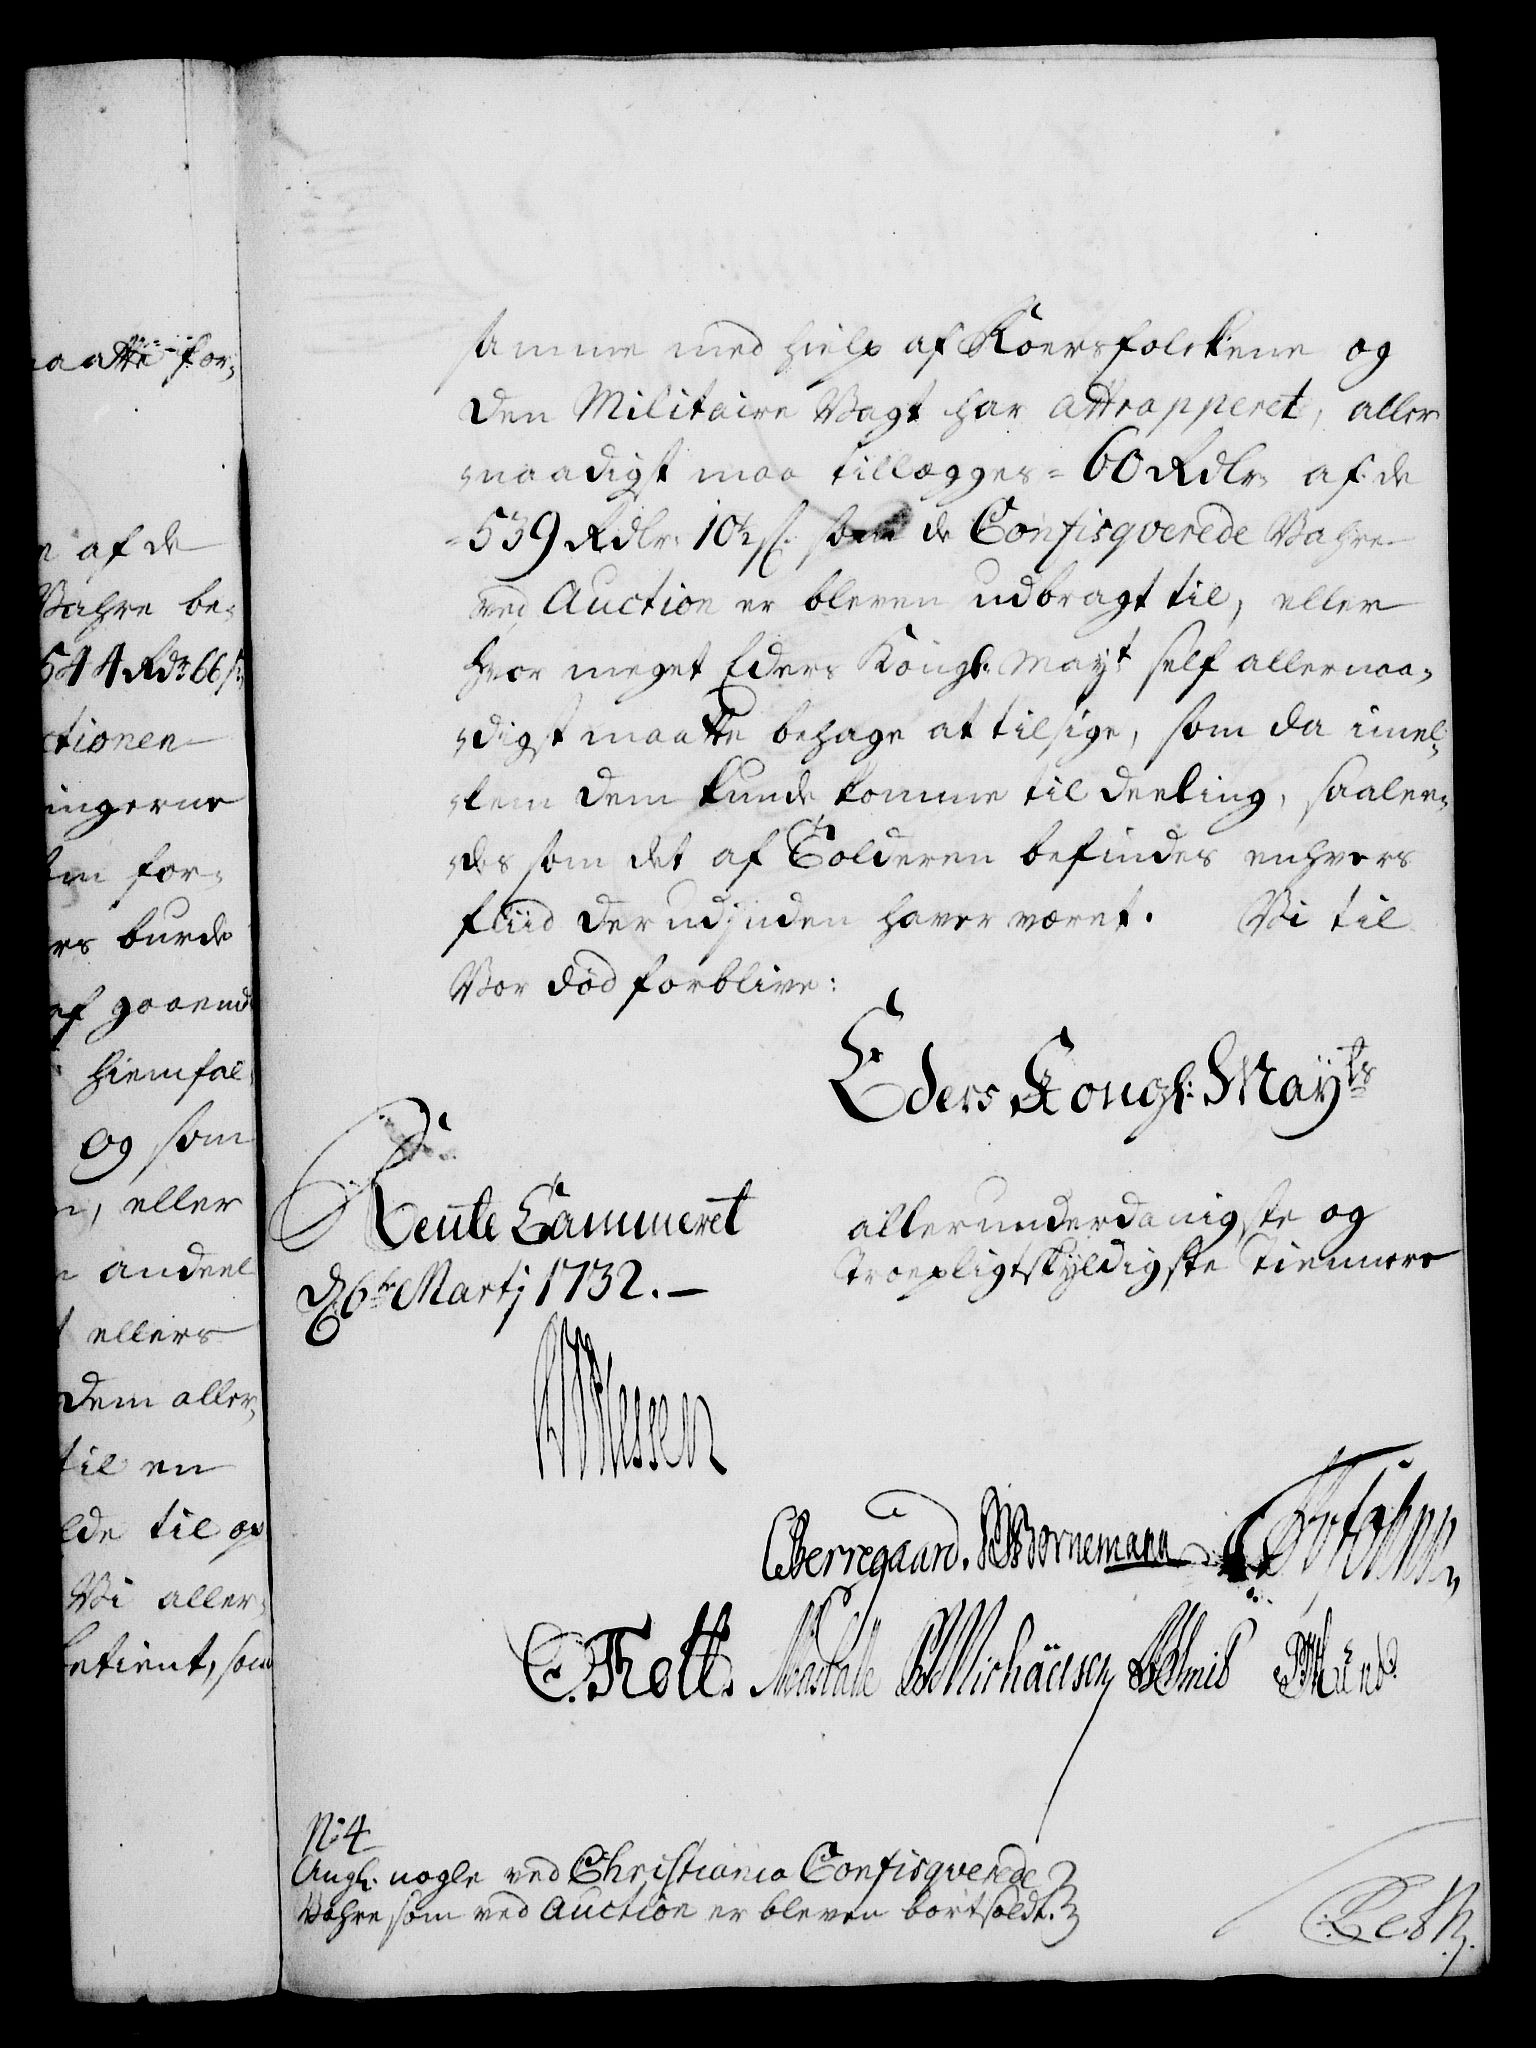 maatte for-
af de
Vahre be-
544 Rdr 66 s
ctionen
ingerne
for-
burde
af gaaende
hiemfal-
og som
eller
andeel
ellers
dem aller-
til en
til op
Vi aller-
betient, som
samme med hielp af Roersfolckene og
den Militaire Vagt har attrapperet, aller-
naadigst maa tillægges = 60 Rdlr. af de
=539 Rdlr. 10½ s. som de Confisqverede Vahre
ved Auction er bleven udbragt til, eller
hvor meget Eders Kongl. Mayt self allernaa-
digst maatte behage at tilsige, som da imel-
lem dem kunde komme til deeling, saalee-
des som det af Tolderen befindes enhvers
fliid der udj inden haver været. Vi til
Vor død forblive:
Eders Kongl: Mayts
Rente Cammeret
d. 6te Martj 1732.
allerunderdanigste og
troepligtskyldigste tienere
Plessen
CBerregaard. Bornemann
Trott. Michaelsen
No: 4
Angl. nogle ved Christiania Confisqverede
Vahre som ved Auction er bleven bortsoldt.